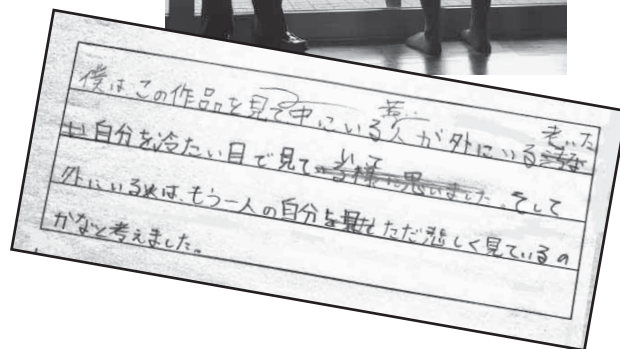 僕はこの作品を見て中にいる若い人が外にいる老いた
自分を冷たい目で見ていて、そして
外にいるは、もう一人の自分をただ悲しく見ているの
かなと考えました。